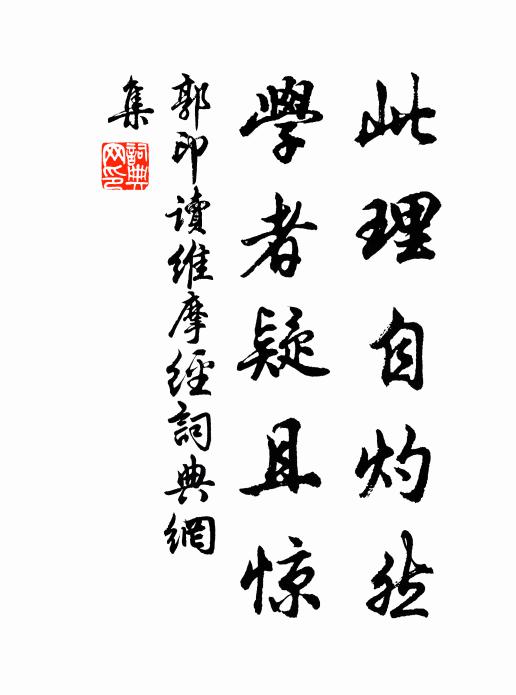 此理自灼然
學者疑且惊
郭印讀維摩經詞典網
集
詞典网印